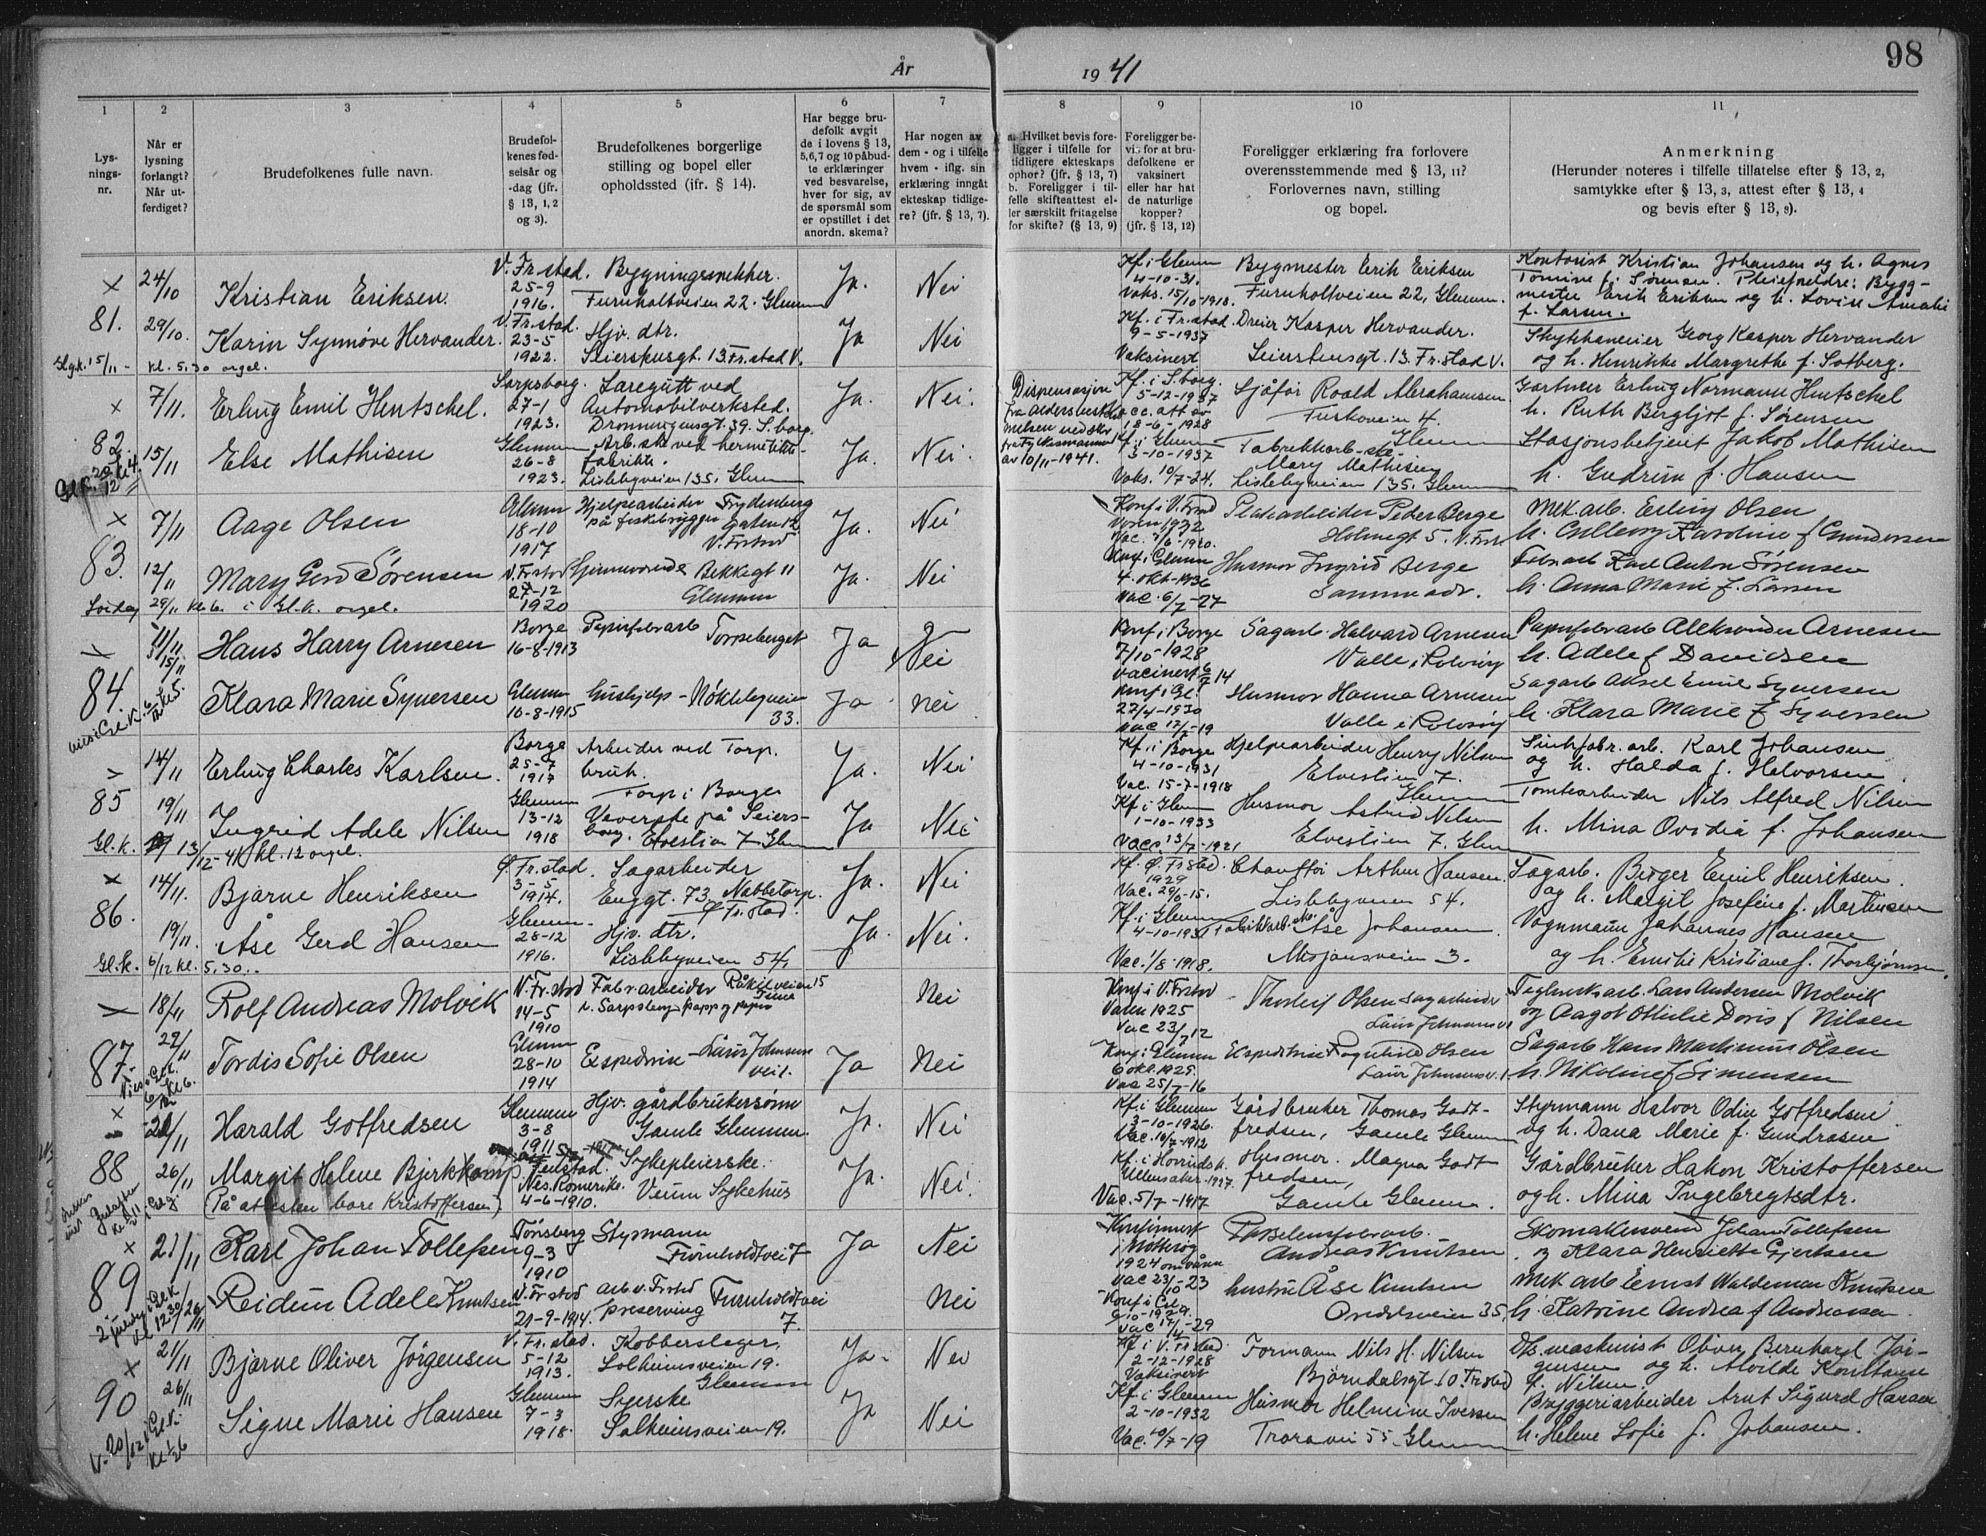 År
1941
98
1
2
3
4
5
6
7
8
9
10
11
Lys-
nings-
nr.
Når er
lysning
forlangt?
Når ut-
ferdiget?
Brudefolkenes fulle navn.
Brudefol-
kenes fød-
selsår og
-dag (jfr.
§ 13, 1, 2
og 3).
Brudefolkenes borgerlige
stilling og bopel eller
opholdssted (ifr. § 14).
Har begge bru-
defolk avgit
de i lovens § 13,
5,6,7 og 10 påbud-
te erklæringer
ved besvarelse,
hver for sig, av
de spørsmål som
er opstillet i det
anordn. skema?
Har nogen av
dem - og i tilfelle
hvem - iflg. sin
erklæring inngått
ekteskap tidlige-
re? (jfr. § 13, 7).
a. Hvilket bevis fore-
ligger i tilfelle for
tidligere ekteskaps
ophør? (jfr. § 13, 7)
b. Foreligger i til-
felle skifteattest el-
ler særskilt fritagelse
for skifte? (§ 13, 9)
Foreligger be-
vis for at bru-
defolkene er
vaksinert
eller har hat
de naturlige
kopper?
(jfr. § 13, 12)
Foreligger erklæring fra forlovere
overensstemmende med § 13, 11?
Forlovernes navn, stilling
og bopel.
Anmerkning
(Herunder noteres i tilfelle tillatelse efter § 13, 2,
samtykke efter § 13, 3, attest efter § 13, 4
og bevis efter § 13, 9).
× 24/10 Kristian Eriksen. V. Fr.stad. 25-9 1916. Bygningssnekker. Furuholtveien 22. Glemm Ja. Nei
Kf. i Glemm 4-10-31. Vaks. 15/10-1918. Bygmester Erik Eriksen Furuholtveien 22, Glemm.
Kontorist Kristian Johansen og h. Agnes
Tomine f. Sørensen. Pleieforeldre: Bygg-
mester Erik Eriksen og h. Lovise Amalie
f. Larsen.
81. 29/10. Karin Synnøve Hervander. V. Fr.stad. 23-5 1922. Hjv. dtr. Seiershusgt. 13. Fr.stad V. Ja Nei
Kf. i Fr.stad. 9-5-1937 Vaksinert Dreier Kasper Hervander. Seierstensgt. 13. Fr.stad V.
Georg Kasper Hervander
og h. Henrikke Margrethe f. Solberg.
15/11 - kl. 5.30 orgel.
× 7/11. Erling Emil Hentschel. Sarpsborg. 27-1 1923. Læregutt ved Automobilverksted. Dronningensgt. 39. S.borg. Ja. Nei.
Dispensasjon
av 10/11-1941.
Kf. i S.borg. 5-12-1937 18-6-1928 Sjåfør Roald Abrahamsen
Gartner Erling Normann Hentschel
h. Ruth Bergljot f. Sørensen
82 15/11 Else Mathisen Glemm 26-8 1923. Arb.ske ved hermetikk- fabrikk. Lislebyveien 135. Glem Ja. Nei.
Kf. i Glemm 3-10-1937 Vaks. 10/7-24. Fabrikkarb.-ske Mary Mathisen Lislebyveien 135. Glemm
Stasjonsbetjent Jakob Mathisen
h. Gudrun f. Hansen
× 7/11 Aage Olsen Glemm 18-10 1917 Hjelpearbeider på fiskebrygge Frydenberg gaten 12 V. Frstad Ja. Nei
Konf i V. Frstad Våren 1932 Platearbeider Peder Berge Holmegt 5. V. Frst
Mek.arb. Erling Olsen
h. Karoline f Gundersen
83. 12/11 Mary Gerd Sørensen V. Frstad 27-12 1920 Hjemmeværende Bekkegt 11 Glemmen Ja. Nei
Konf. i Glemm 4. okt-1936 Vac. 6/7-27 Husmor Ingrid Berge Samme adr.
Karl Anton Sørensen
h. Anna Marie f. Larsen
29/11 kl 6. i Gl.k. orgel.
11/11 Hans Harry Arnesen Borge 16-8-1913 Papirfabr.arb Torpeberget Ja Nei
Konf. i Borge 7/10-1928 Sagarb. Halvard Arnesen Valle i Rolvsøy
Papirfabr.arb Aleksander Arnesen
h. Adele f Davidsen
84 15/11 Klara Marie Syversen Glemm 10-8-1915 Hushjelp - 33. Ja nei
Konf. i Gl. 27/4-1930 Vac 12/7-19 Husmor Hanna Arnesen Valle i Rolvsøy
Sagarb Aksel Emil Syversen
h. Klara Marie f Syversen
14/11 Erling Charles Karlsen. Borge 25-7 1917 Arbeider ved Torp. bruk. Torp i Borge Ja. Nei
Kf. i Borge 4-10-1931 Vac. 15-7-1918 Hjelpearbeider Henry Nilsen Elvestien 7. Glemm
Karl Johansen
og h. Halda f. Halvorsen
85 19/11 Ingrid Adele Nilsen Glemm 13-12 1918 Veverske på Seiers- borg. Elvestien 7 Glemm Ja Nei
Kf. i Glem 1-10-1933 Vacc. 13/7-1921 Husmor Astrid Nilsen Elvestien 7. Glem
Tomtearbeider Nils Alfred Nilsen
h. Mina Ovidia f. Johansen
Gl.k. 13/12-41 kl. 12 orgel.
× 14/11. Bjarne Henriksen Ø. Fr.stad. 3-5 1914. Sagarbeider Enggt. 73 Nabbetorp. Ø Fr.stad. Ja. Nei
Kf. Ø. Frstad 1929 Vac. 29/6-15. Chauffør Arthur Hansen. Lislebyveien 54.
Sagarb. Birger Emil Henriksen.
og h. Margit Josefine f. Martinsen
86. 19/11. Åse Gerd Hansen Glemm. 28-12 1916. Hjv. dtr. Lislebyveien 54. Ja. Nei.
Kf. i Glemm 4-10-1931 Vac. 1/8-1918. Fabrikkarb. Åse Johansen. Misjonsveien 3.
Vognmann Johannes Hansen
og h. Emilie Kristiane f. Thorbjørnsen.
Gl.k. 6/12 kl. 5.30.
18/11 Rolf Andreas Molvik V. Fr.stad 14-5 1910 Fabr.arbeider Råkilveien 15 Nei
Konf i V. Frstad Våren 1925 Vac 23/7 12 Thorleif Olsen Sagarbeider
Teglverksarb. Lars Andersen Molvik
og Aagot Ottilie Doris f Nilsen
87. 22/11 Tordis Sofie Olsen Glemm 28-10 1914 Expeditrise - Laur Johnsens vei 1. Ja Nei
Konf. i Glemm 6 okt. 1929. Vac 25/7-16 Expeditrise Ragnhild Olsen
Sagarb Hans Martinius Olsen
h. Nikoline f Simensen
× 20/11 Harald Gotfredsen Glemm 3-8 1911 Hjv. gårdbrukersønn Gamle Glemmen. Ja. Nei
Kf. i Glemm 3-10-1926. Gårdbruker Thomas Godt- fredsen, Gamle Glemm
Styrmann Halvor Odin Gotfredsen
og h. Dana Marie f. Gundrasen
88 26/11 Margit Helene Bjerkkamp
(På attesten bare Kristoffersen) Nes. Romerike. 4-6-1910. Sykepleierske. Veum Sykehus Ja. Nei.
Ullensaker-1927. Vac. 5/7-1917 Husmor. Magna Godt fredsen, Gamle Glemm.
Gårdbruker Hakon Kristoffersen
og h. Mina Ingebregtsdtr.
× 21/11 Karl Johan Tollefsen Tønsberg 9-3 1910 Styrmann Furuholdtvei 7 Ja Nei
Konfirmert 1924 Vac 23/10-23 Andreas Knutsen
Skomakersvend Johan Tollefsen
og Klara Henriette Gjertsen
89 26/11 Reidun Adele Knutsen V. Frstad 21-9-1914. arb. v. Frstad preserving Furuholdtvei 7. Nei
hustru Åse Knutsen Oredsveien 35.
Mek arb Ernst Waldemar Knutsen
h. Katrine Andrea f Andreassen
× 21/11 Bjarne Oliver Jörgensen V. Fr.stad. 5-12 1913. Kobberslager. Solheimsveien 19. Glemm Ja. Nei
Kf. i V. Frstad 2-12-1928 Vaksinert Formann Nils H. Nilsen Björndalsgt. 10. Frstad
maskinist Oliver Bernhard Jör-
gensen og h. Alvilde Konstanse
f. Nilsen.
90 26/11 Signe Marie Hansen Glemm 7-3 1918. Syerske Solheimsveien 19. Ja Nei
Kf. i Glemm 2-10-1932 Vac. 10/7-19 Husmor Helmine Iversen Traravei 55. Glemm
Bryggeriarbeider Arnt Sigurd Hansen
h. Helene Sofie f. Johansen.